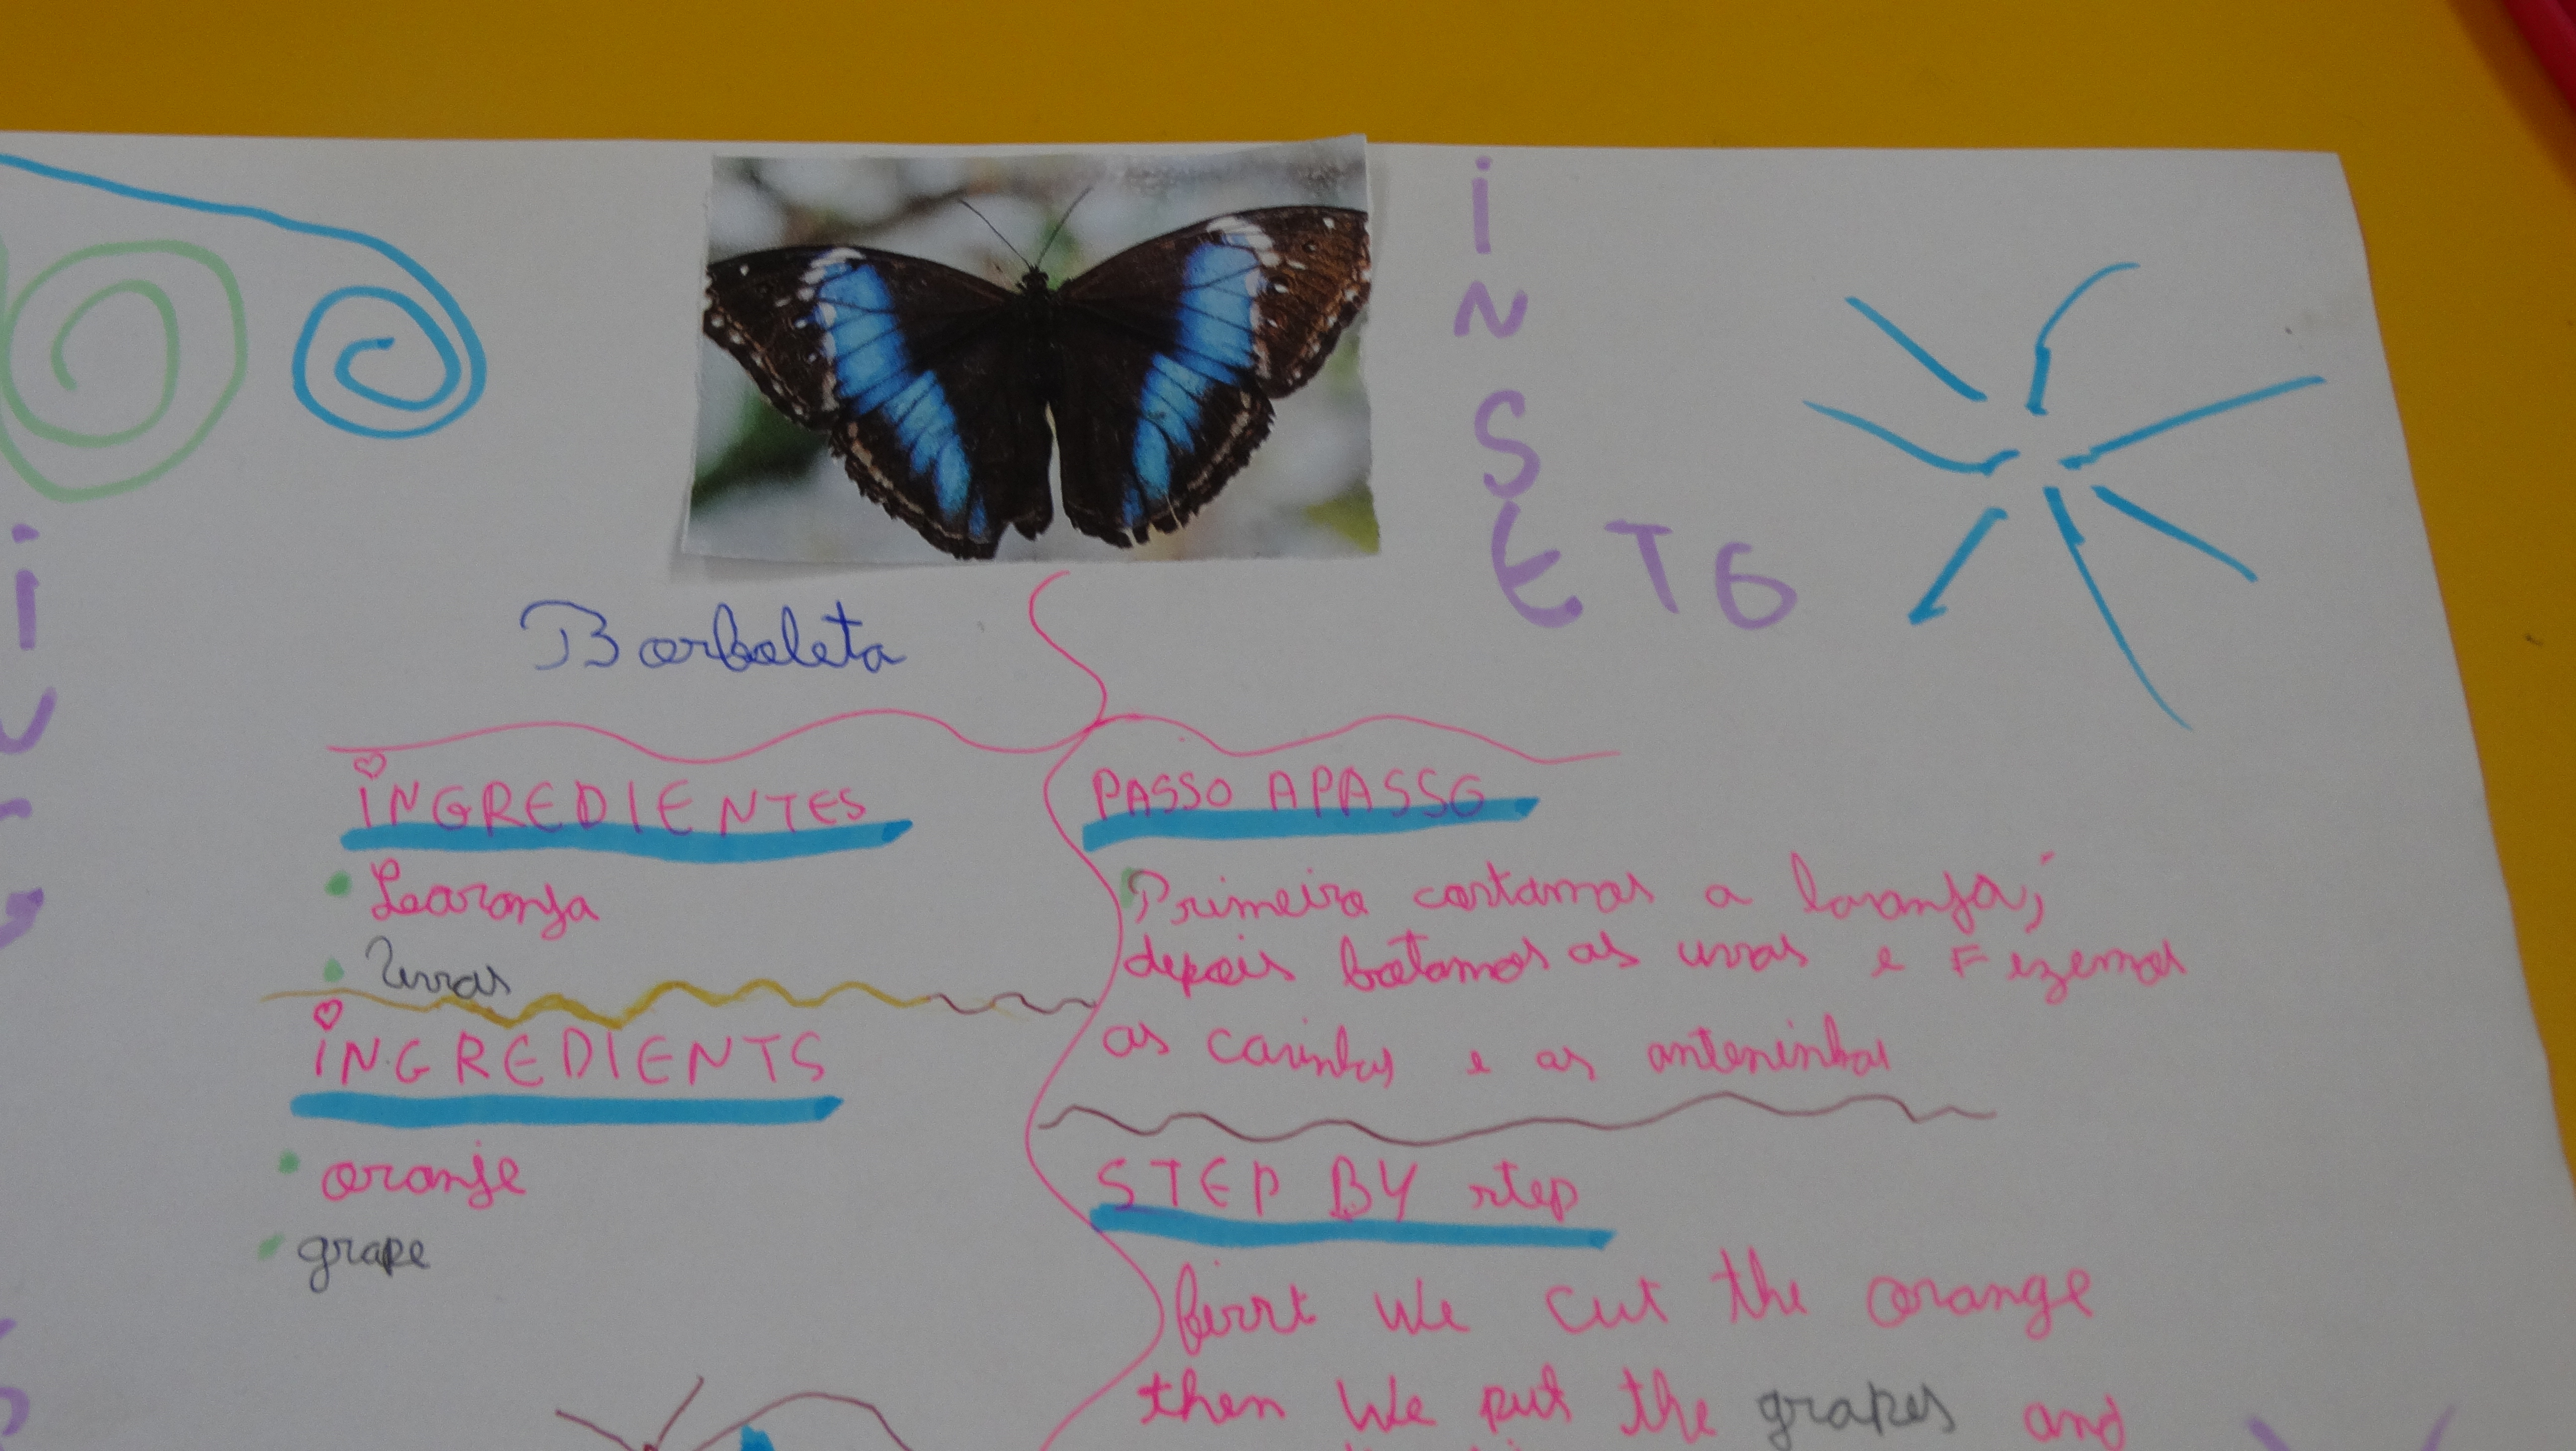 INSETO
Borboleta
INGREDIENTES
Laranja
Uvas
INGREDIENTS
oranje
grape
PASSO A PASSO
Primeiro cortamos a laranja,
depois botamos as uvas e Fizemos
as carinhas e as anteninhas
STEP BY step
first We cut the orange
then We put the grapes and